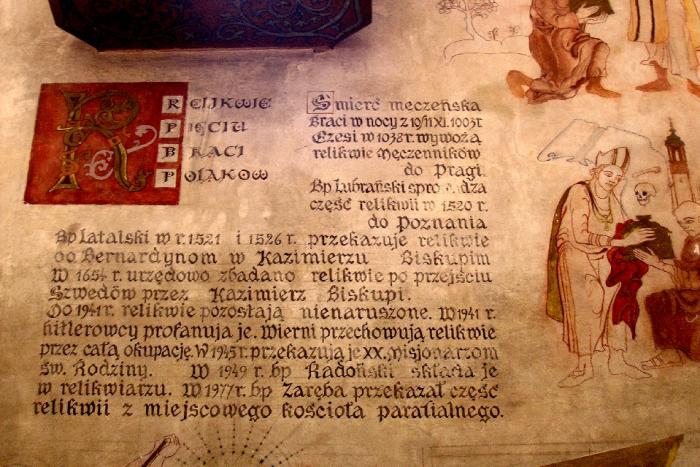 R
RELIKWIE
PIĘCIU
BRACI
POLAKOW
Śmierć męczeńska
Braci w nocy z 10/11 XI. 1003 r
Czesi w 1038 r. wywożą
relikwie Męczenników
do Pragi.
Bp Lubrański sprowadza
część relikwii w 1520 r.
do Poznania
Bp Latalski w r. 1521 i 1526 r. przekazuje relikwie
oo Bernardynom w Kazimierzu Biskupim
W 1654 r. urzędowo zbadano relikwie po przejściu
Szwedów przez Kazimierz Biskupi.
Do 1941 r. relikwie pozostają nienaruszone. W 1941 r.
hitlerowcy profanują je. Wierni przechowują relikwie
przez całą okupację. W 1945 r. przekazują je XX. Misjonarzom
św. Rodziny. W 1949 r. bp Radoński składa je
w relikwiarzu. W 1977 r. bp Zaręba przekazał część
relikwii z miejscowego kościoła parafialnego.